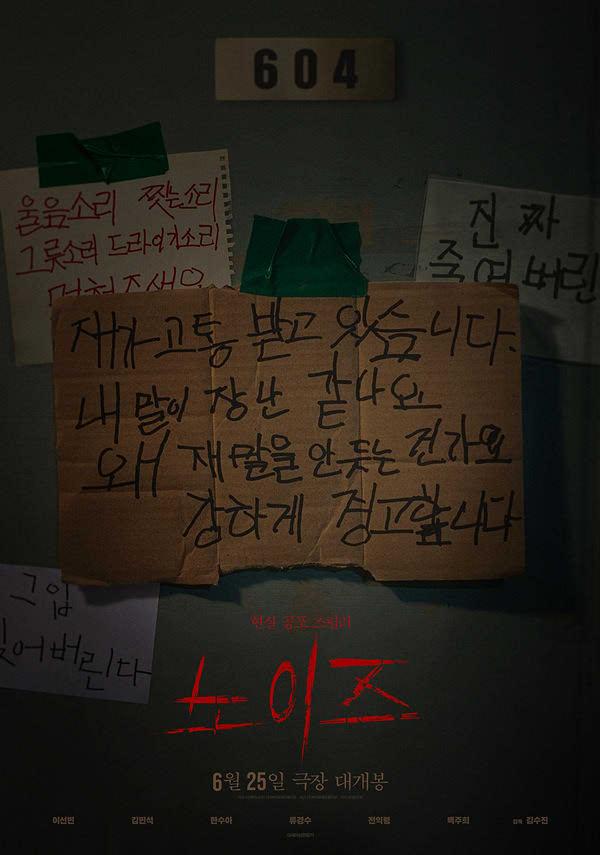 604
울음소리 찢는소리
그릇소리 드라이기소리
진짜
죽여버린
재가 고통 받고 있슴니다.
내 말이 장난 같나요
왜 재 말을 안듣는 건가요
강하게 경고합니다
그입
찢어버린다
현실 공포 스릴러
노이즈
6월 25일 극장 대개봉
이선빈 김민석 한수아 류경수 전익령 백주희 감독 김수진